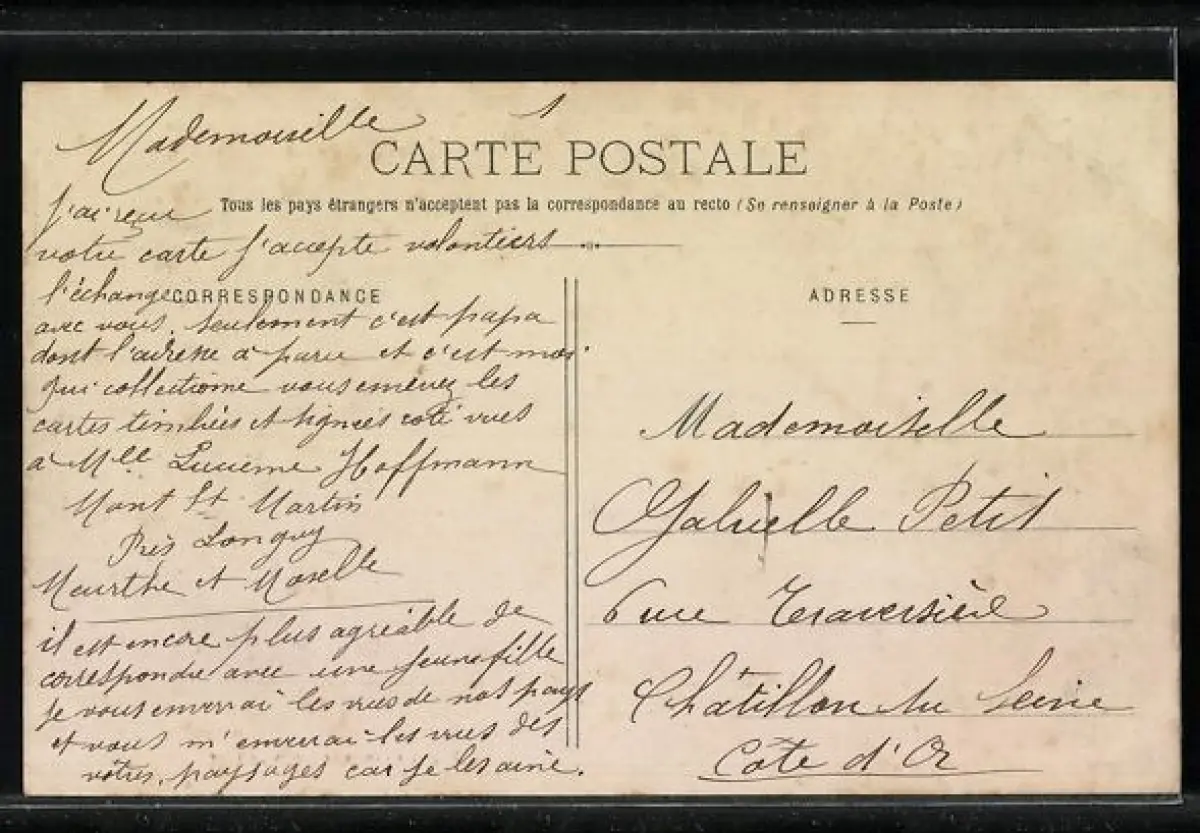 Mademoiselle
CARTE POSTALE
j'ai reçu
Tous les pays étrangers n'acceptent pas la correspondance au recto (Se renseigner à la Poste)
votre carte j'accepte volontiers
l'échange
CORRESPONDANCE
avec vous. seulement c'est papa
dont l'adresse a paru et c'est moi
qui collectionne vous les
cartes timbrées et signées coté vues
à Mlle Lucienne Hoffmann
Mont St Martin
Près Longwy
Meurthe et Moselle
il est encore plus agréable de
correspondre avec une jeune fille
je vous enverrai les vues de nos pays
et vous m'enverrai les vues des
votres, paysages car je les aime.
ADRESSE
Mademoiselle
Gabrielle Petit
6 rue Traversière
Châtillon su Seine
Côte d'Or